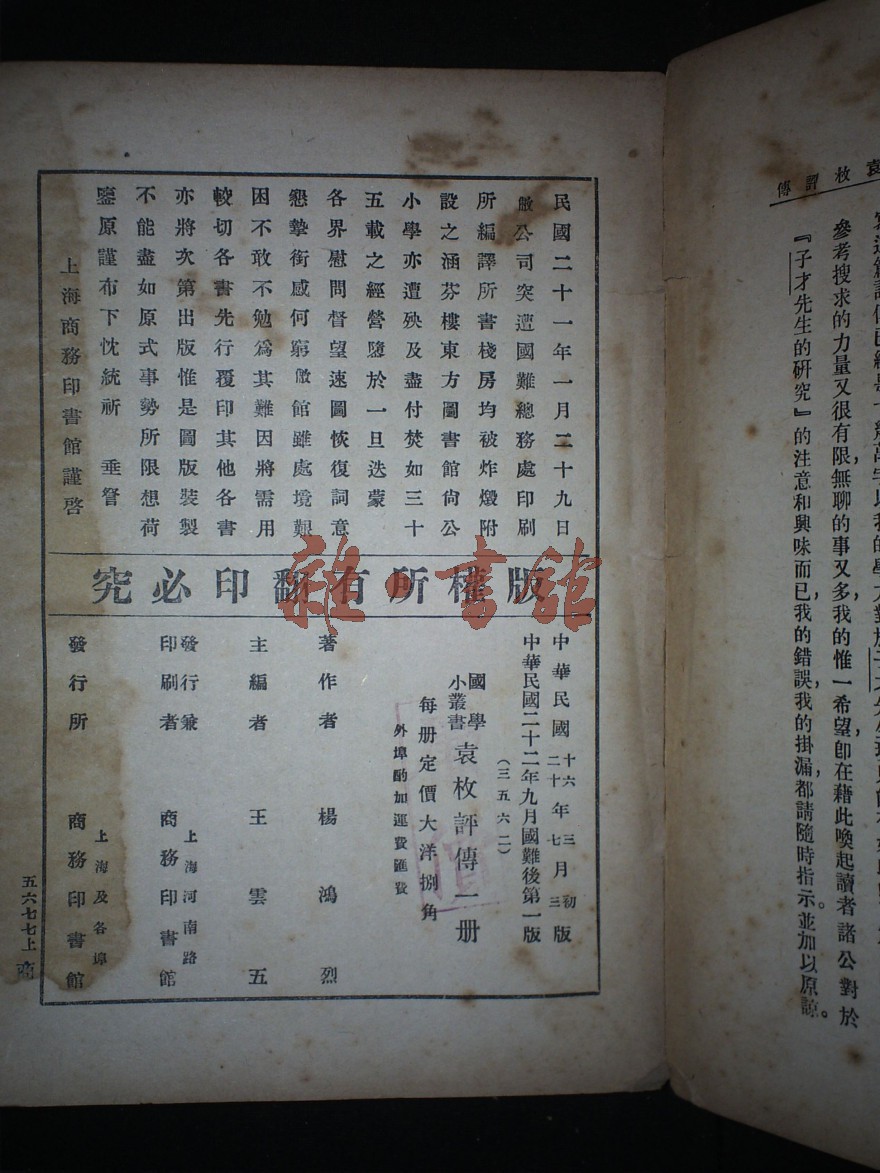 袁枚評傳
參考搜求的力量又很有限，無聊的事又多，我的惟一希望，卽在藉此喚起讀者諸公對於
『子才先生的研究』的注意和興味而已，我的錯誤，我的掛漏，都請隨時指示。並加以原諒。
民國二十一年一月二十九日
敝公司突遭國難總務處印刷
所編譯所書棧房均被炸燬附
設之涵芬樓東方圖書館尙公
小學亦遭殃及盡付焚如三十
五載之經營隳於一旦迭蒙
各界慰問督望速圖恢復詞意
懇摯銜感何窮敝館雖處境艱
困不敢不勉爲其難因將需用
較切各書先行覆印其他各書
亦將次第出版惟是圖版裝製
不能盡如原式事勢所限想荷
鑒原謹布下忱統祈 垂詧
上海商務印書館謹啓
版權所有翻印必究
中華民國十六年三月初版
二十 七 三
中華民國二十二年九月國難後第一版
（三五六二）
國學小叢書 袁枚評傳一册
每册定價大洋捌角
外埠酌加運費匯費
著作者 楊鴻烈
主編者 王雲五
發行兼印刷者 上海河南路 商務印書館
發行所 上海及各埠 商務印書館
五六七七上 商
雜·書館